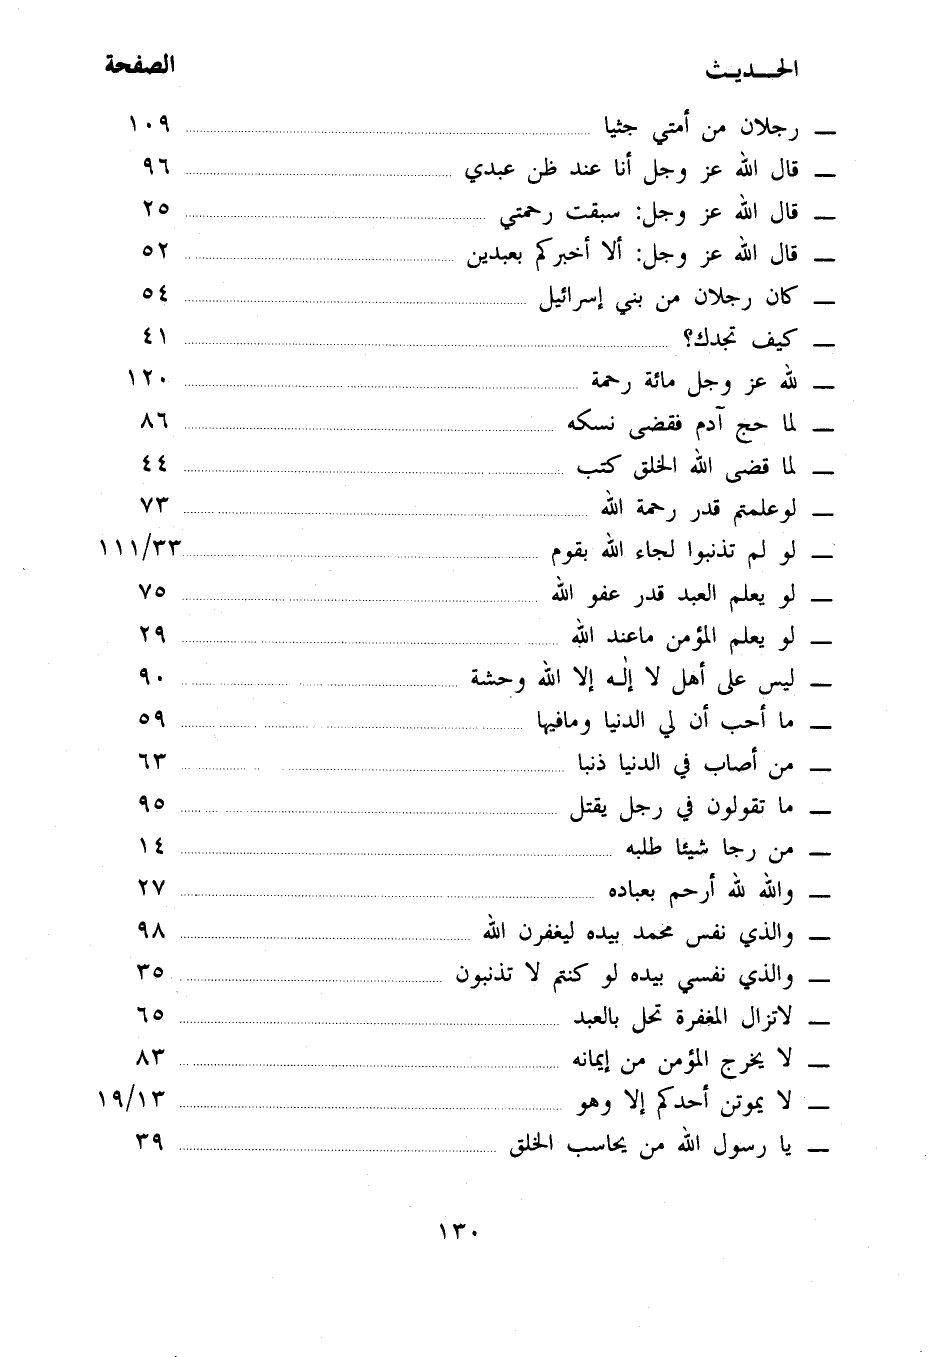 الحديث الصفحة
— رجلان من أمتي جثيا ........ ١٠٩
— قال الله عز وجل أنا عند ظن عبدي ........ ٩٦
— قال الله عز وجل: سبقت رحمتي ........ ٢٥
— قال الله عز وجل: ألا أخبركم بعبدين ........ ٥٢
— كان رجلان من بني إسرائيل ........ ٥٤
— كيف تجدك؟ ........ ٤١
— لله عز وجل مائة رحمة ........ ١٢٠
— لما حج آدم فقضى نسكه ........ ٨٦
— لما قضى الله الخلق كتب ........ ٤٤
— لوعلمتم قدر رحمة الله ........ ٧٣
— لو لم تذنبوا لجاء الله بقوم ........ ١١١/٣٣
— لو يعلم العبد قدر عفو الله ........ ٧٥
— لو يعلم المؤمن ماعند الله ........ ٢٩
— ليس على أهل لا إلٰه إلا الله وحشة ........ ٩٠
— ما أحب أن لي الدنيا ومافيها ........ ٥٩
— من أصاب في الدنيا ذنبا ........ ٦٣
— ما تقولون في رجل يقتل ........ ٩٥
— من رجا شيئا طلبه ........ ١٤
— والله لله أرحم بعباده ........ ٢٧
— والذي نفس محمد بيده ليغفرن الله ........ ٩٨
— والذي نفسي بيده لو كنتم لا تذنبون ........ ٣٥
— لاتزال المغفرة تحل بالعبد ........ ٦٥
— لا يخرج المؤمن من إيمانه ........ ٨٣
— لا يموتن أحدكم إلا وهو ........ ١٩/١٣
— يا رسول الله من يحاسب الخلق ........ ٣٩
١٣٠